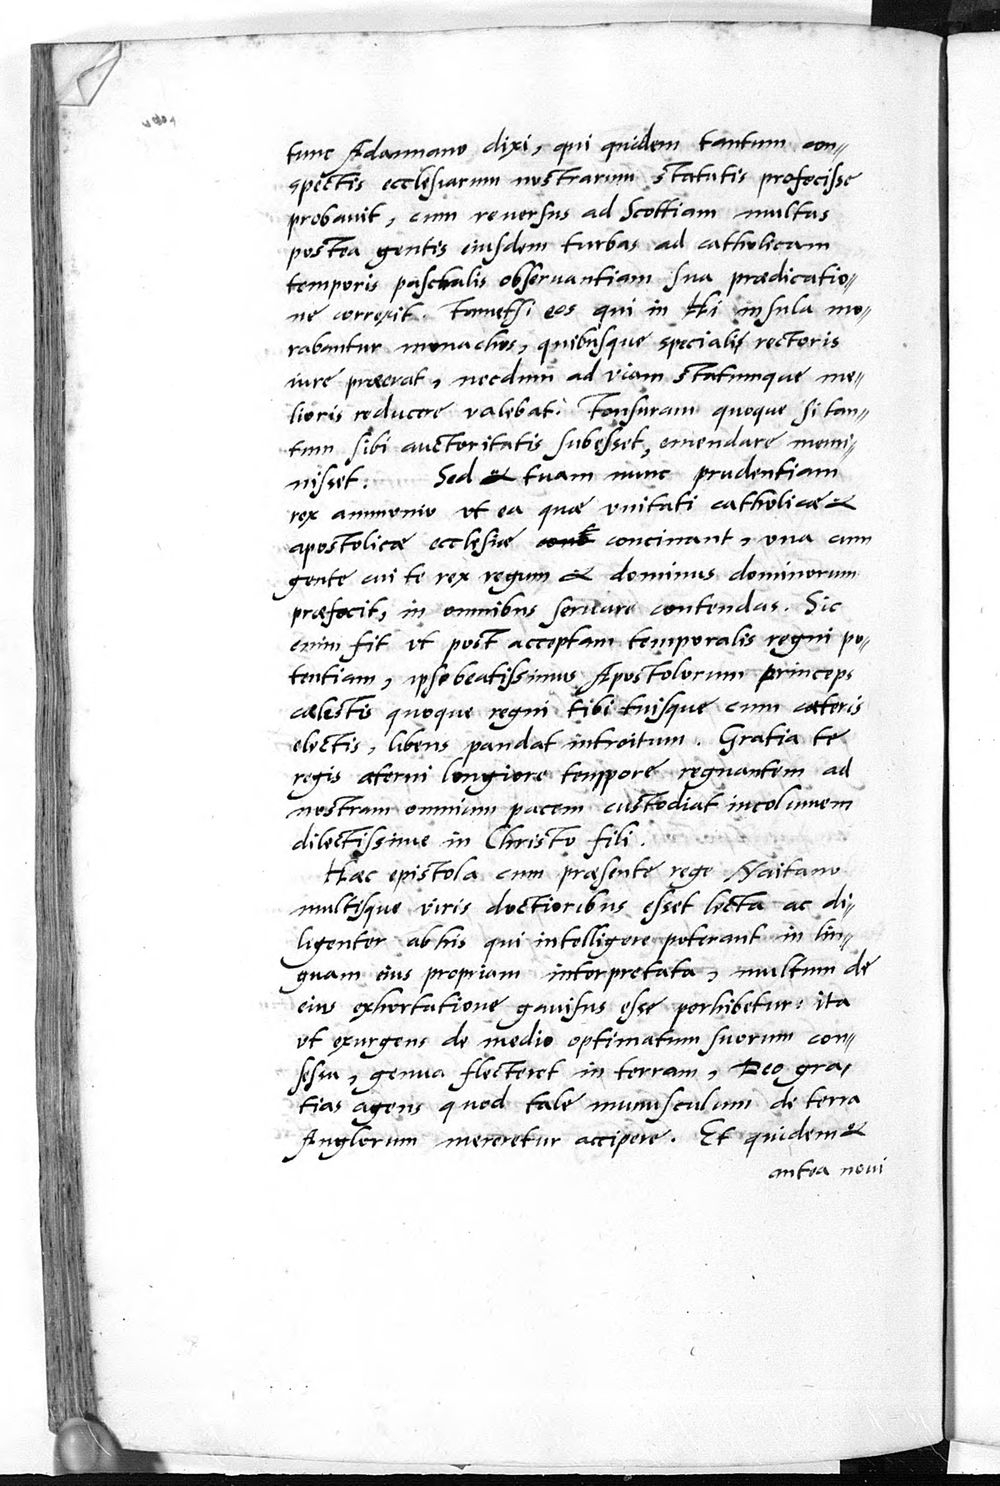 tunc Adamnano dixi, qui quidem tantum con„
spectis ecclesiarum nostrarum statutis profecisse
probavit, cum reversus ad Scottiam multas
postea gentis eiusdem turbas ad catholicam
temporis paschalis observantiam sua prædicatio„
ne correxit. Tametsi eos qui in Hi insula mo„
rabantur monachos, quibusque speciali rectoris
iure præerat, necdum ad viam statumque me„
lioris reducere valebat. Tonsuram quoque si tan„
tum sibi auctoritatis subesset, emendare memi„
nisset. Sed & tuam nunc prudentiam
rex ammoneo ut ea quæ unitati catholicæ &
apostolicæ ecclesiæ concinant, una cum
gente cui te rex regum & dominus dominorum
præfecit, in omnibus servare contendas. Sic
enim fit ut post acceptam temporalis regni po„
tentiam, ipse beatissimus Apostolorum princeps
cælestis quoque regni tibi tuisque cum cæteris
electis, libens pandat introitum. Gratia te
regis æterni longiore tempore regnantem ad
nostram omnium pacem custodiat incolumem
dilectissime in Christo fili.
Hæc epistola cum præsente rege Naitano
multisque viris doctioribus esset lecta ac di„
ligenter ab his qui intelligere poterant in lin„
guam eius propriam interpretata, multum de
eius exhortatione gavisus esse perhibetur: ita
ut exurgens de medio optimatum suorum con„
sessu, genua flecteret in terram, Deo gra„
tias agens quod tale munusculum de terra
Anglorum mereretur accipere. Et quidem &
antea novi